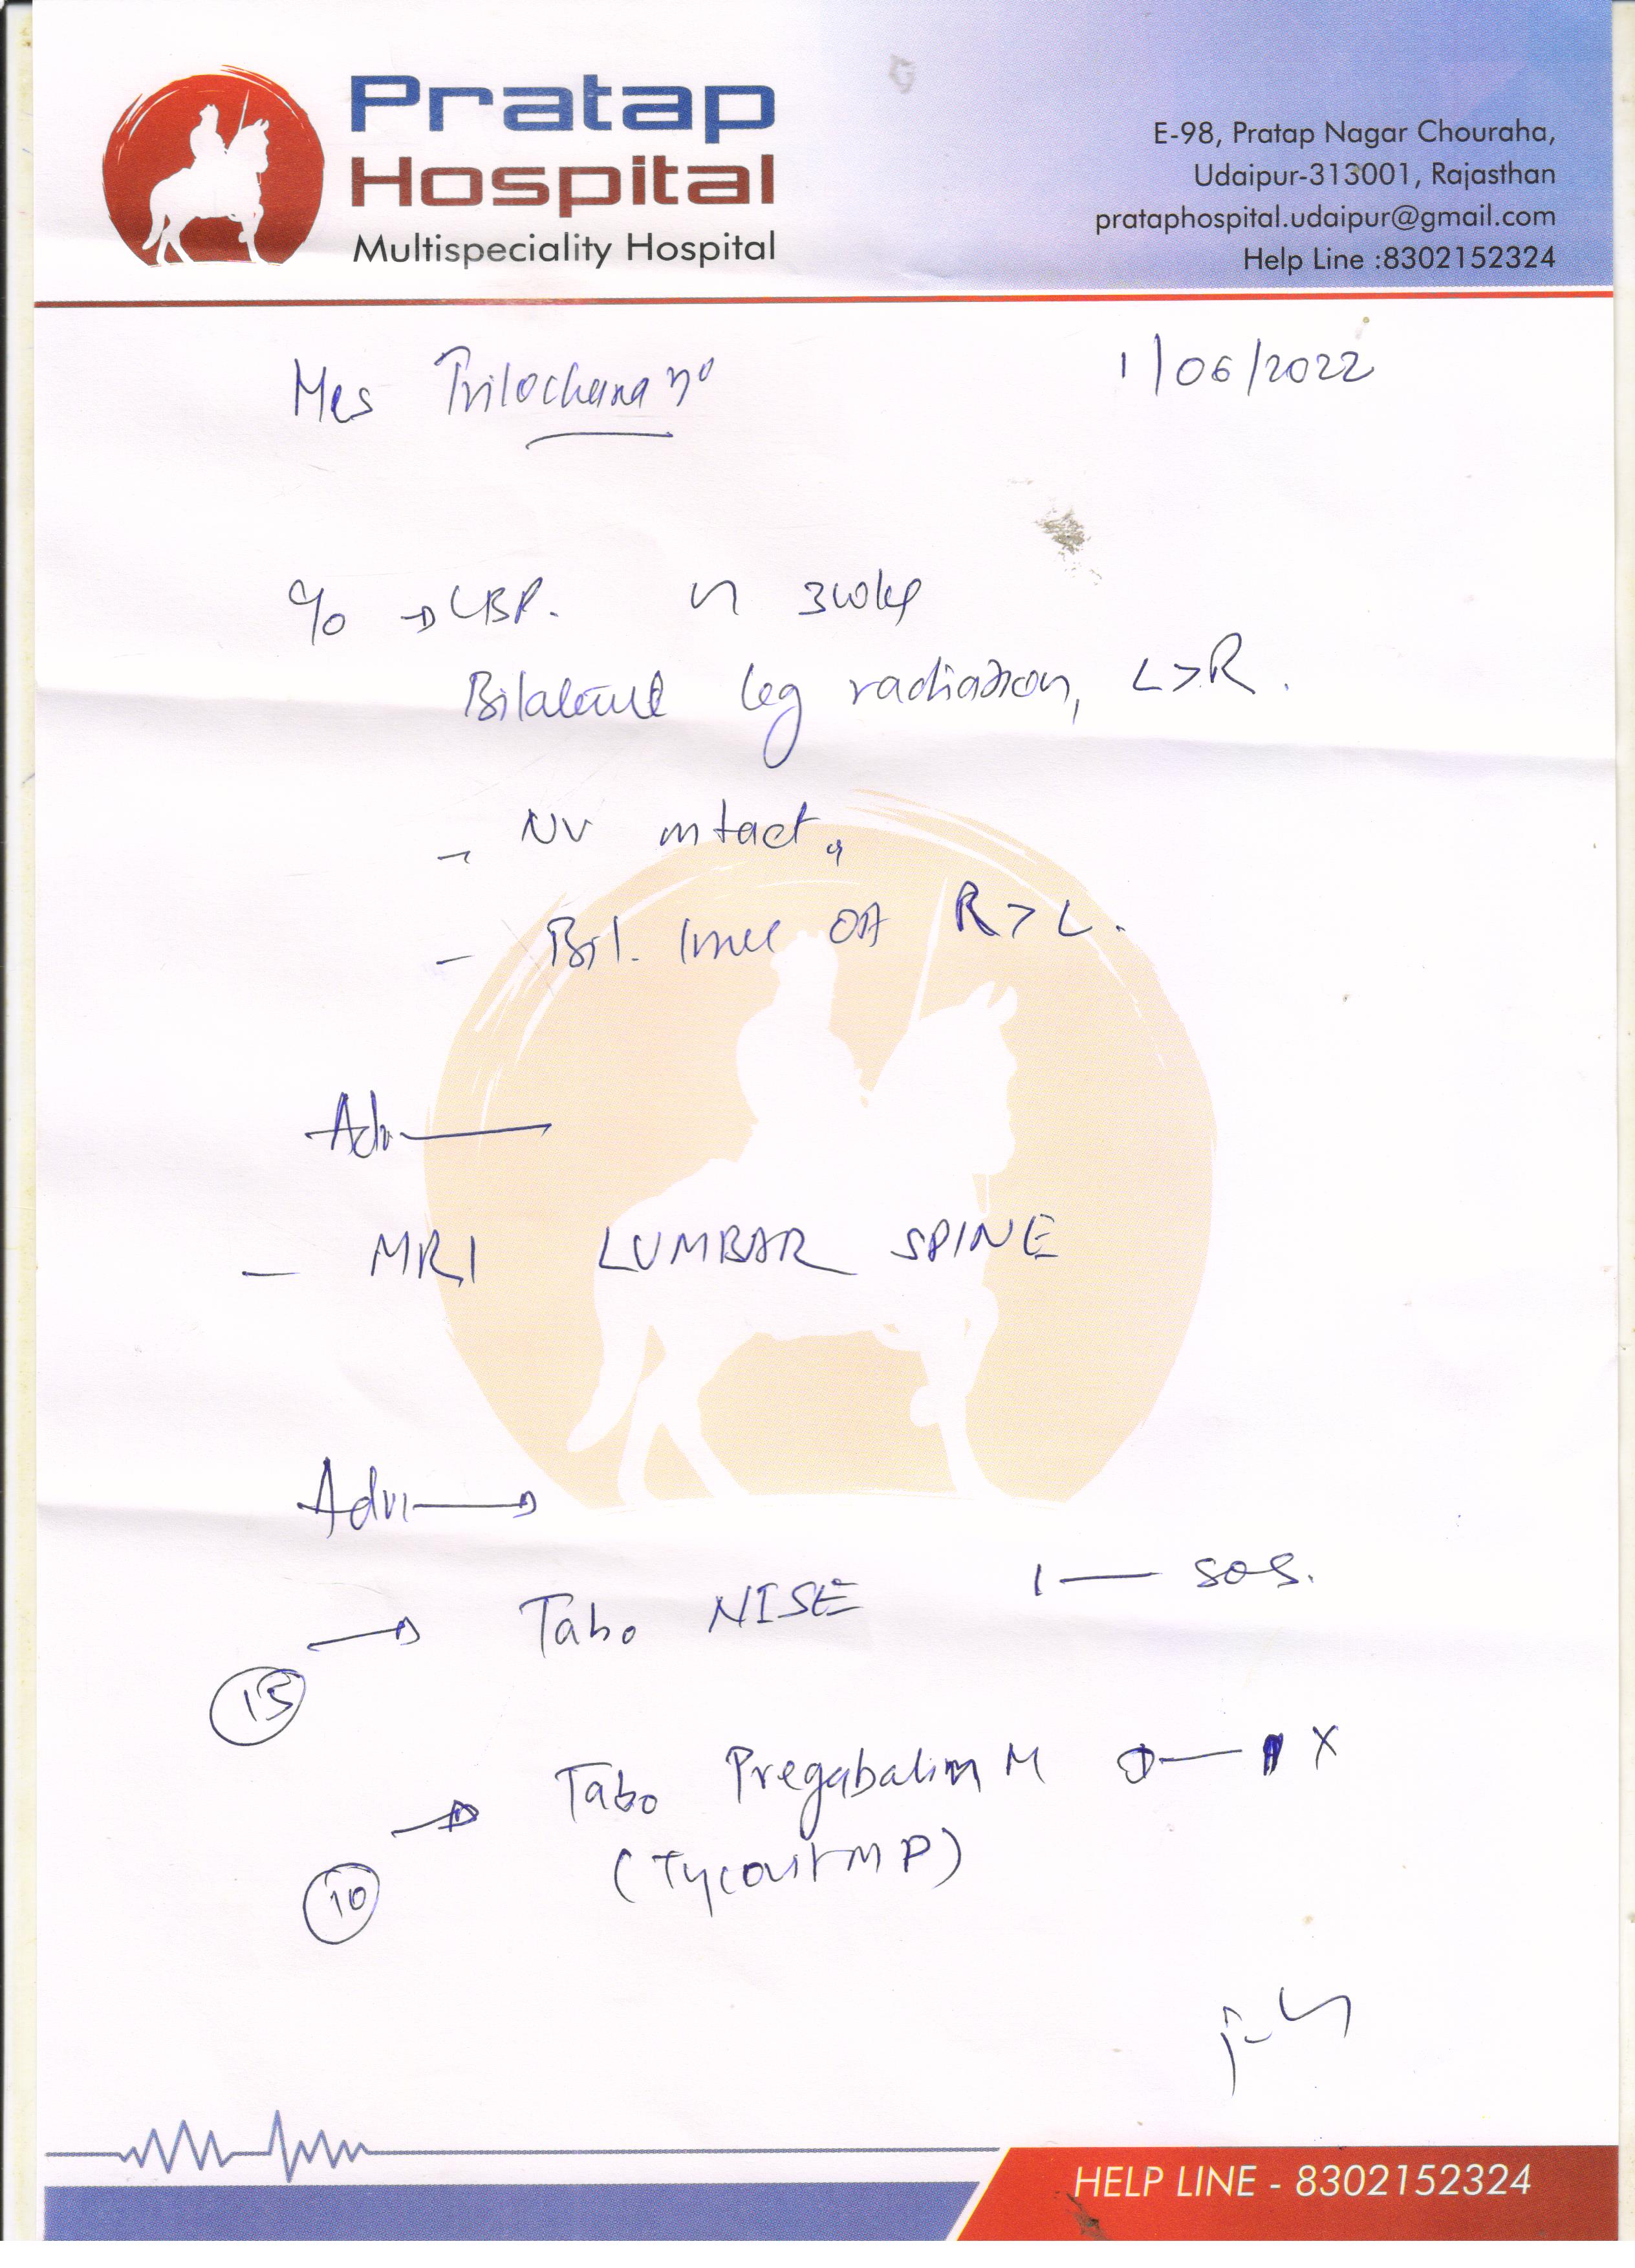 Pratap
Hospital
Multispeciality Hospital
E-98, Pratap Nagar Chouraha,
Udaipur-313001, Rajasthan
prataphospital.udaipur@gmail.com
Help Line :8302152324
Mrs Trilochana
1/06/2022
c/o → LBP. 3 wks
Bilateral leg radiation, L>R.
- NV intact.
- Bil. knee OA R>L.
Adv
- MRI LUMBAR SPINE
Adv →
→ Tab. NISE 1 — SOS.
15
→ Tab. Pregabalin M X
10
HELP LINE - 8302152324